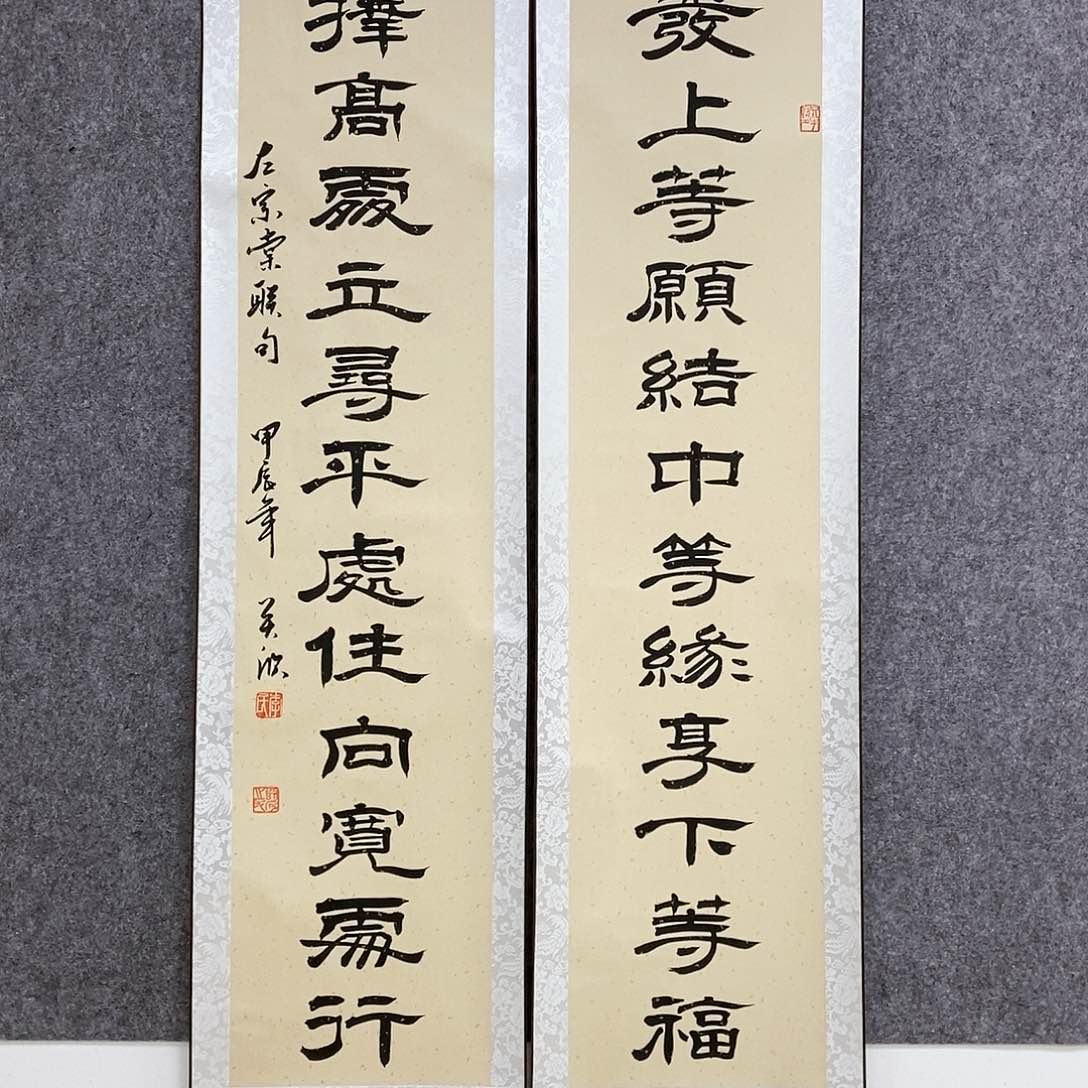 發上等願結中等緣享下等福
擇高處立尋平處住向寬處行
左宗棠联句 甲辰年